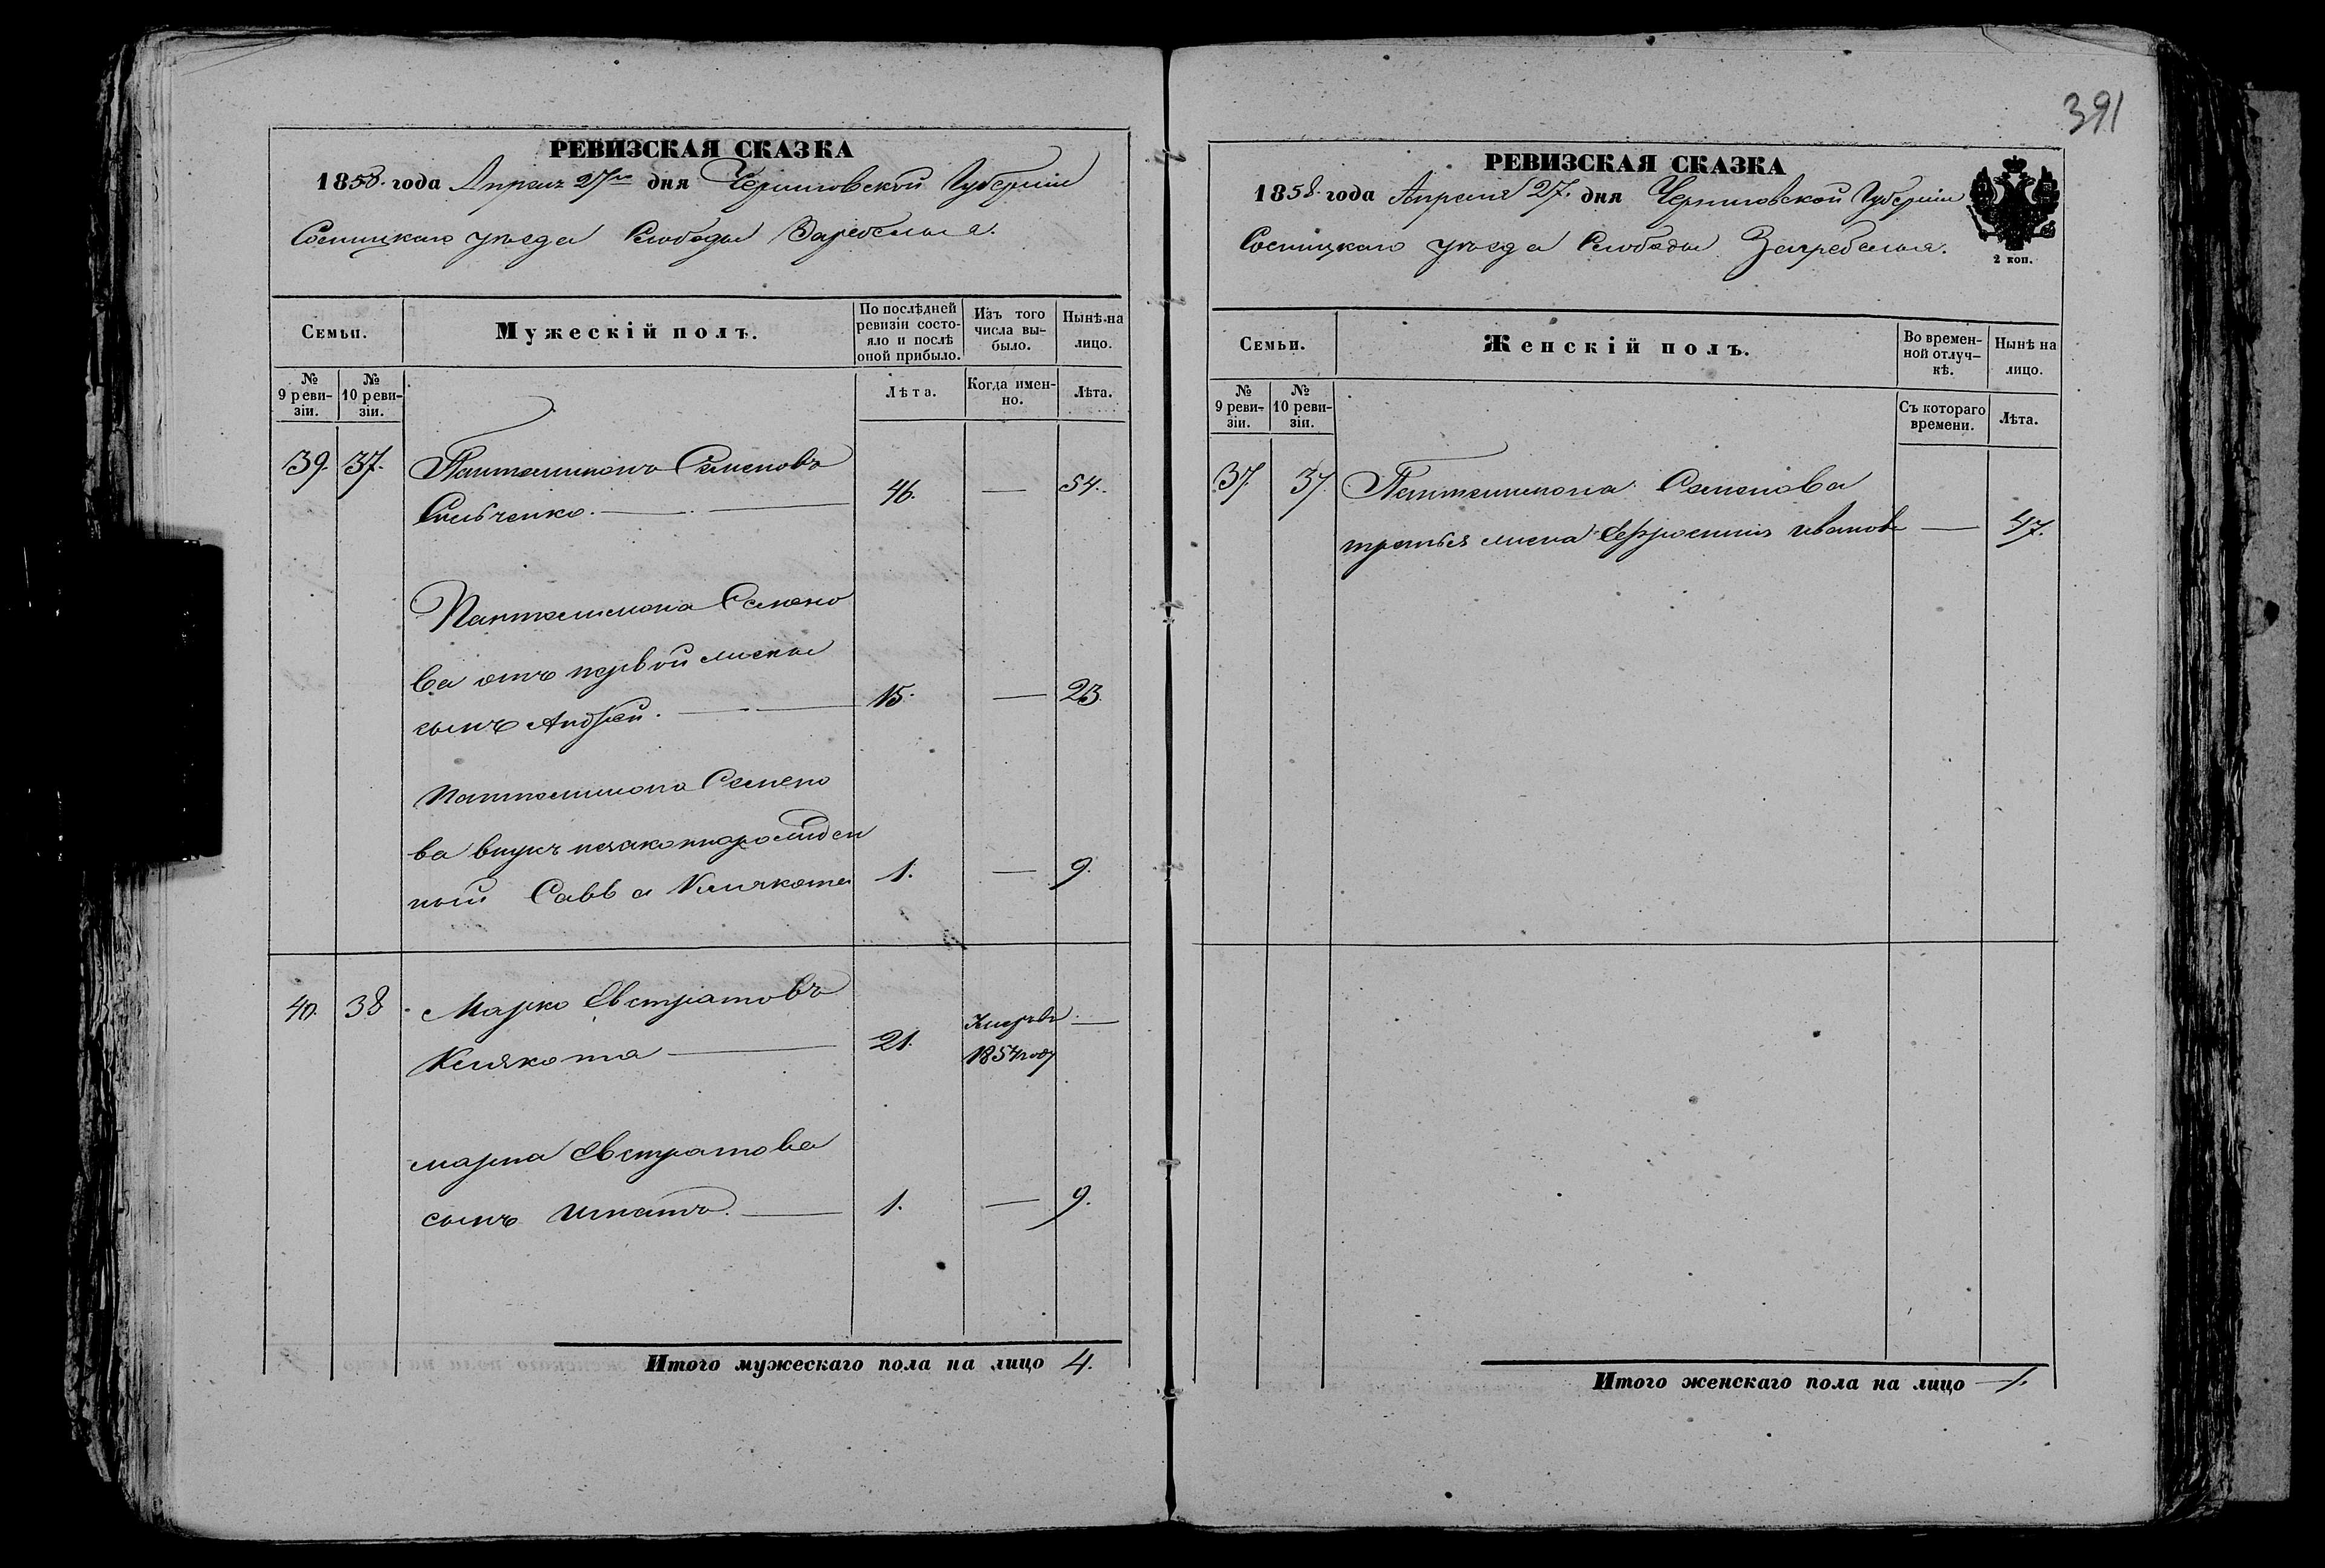 391
РЕВИЗСКАЯ СКАЗКА
1858. года Апреля 27го дня Черниговской Губерніи
Сосницкаго уѣзда Слободы Загребелья.
Семьи.
Мужескій полъ.
По послѣдней ревизіи состояло и послѣ оной прибыло.
Изъ того числа выбыло.
Нынѣ на лицо.
№ 9 ревизіи.
№ 10 ревизіи.
Лѣта.
Когда именно.
Лѣта.
39. 37. Пантелимонъ Семеновъ
46. — 54.
Пантелимона Семено
ва отъ первой жены
сынъ Андрей. 15. — 23.
Пантелимона Семено
ва внукъ незаконнорожден
ный Савва Клякота 1. — 9.
40. 38. Марко Евстратовъ
Клякота 21. Умеръ въ 1854 году —
Марка Евстратова
сынъ Игнатъ. 1. — 9.
Итого мужескаго пола на лицо 4.
РЕВИЗСКАЯ СКАЗКА
1858. года Апреля 27. дня Черниговской Губерніи
Сосницкаго уѣзда Слободы Загребелья.
2 коп.
Семьи.
Женскій полъ.
Во временной отлучкѣ.
Нынѣ на лицо.
№ 9 ревизіи.
№ 10 ревизіи.
Съ котораго времени.
Лѣта.
37. 37. Пантелимона Семенова
третья жена Ефросинія Иванов — 47.
Итого женскаго пола на лицо — 1.